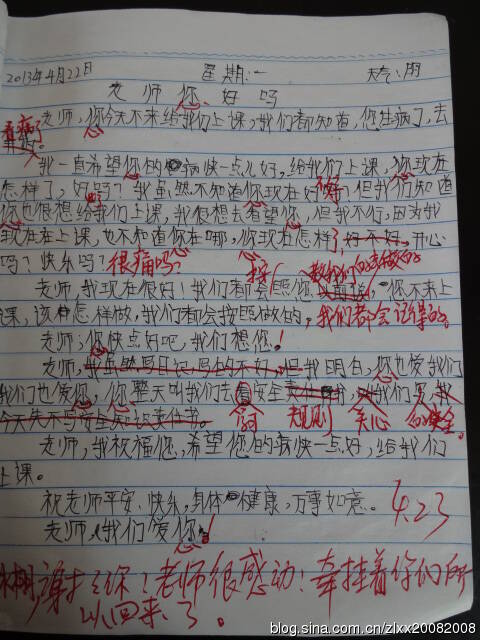 2013年4月22日 星期:一 天气:阴
老师您好吗
老师,你今天不来给我们上课,我们都知道,您生病了,去
看病了
我一直希望您的病快一点儿好,给我们上课,你现在
怎样了,好吗?我虽然不知道你现在好不好,但我们知道
你也很想给我们上课,我很想去看望你,但我不行,因为我
现在在上课,也不知道你在哪,你现在怎样了,好不好,开心
吗?快乐吗?很痛吗?
老师,我现在很好!我们都会照您,你不来上
课,该怎样做,我们都会按照做的,我们都会记得的。
老师,你快点好吧,我们想您!
老师,我虽然,但我明白,您也爱我们
我们也爱您,您整天叫我们注意安全
规则 关心 安全
老师,我祝福您,希望您的病快一点好,给我们
上课。
祝老师平安、快乐,身体健康,万事如意。
老师,我们爱你!
4.23
谢谢你!老师很感动!牵挂着你们所
以回来了。
blog.sina.com.cn/zlxx20082008